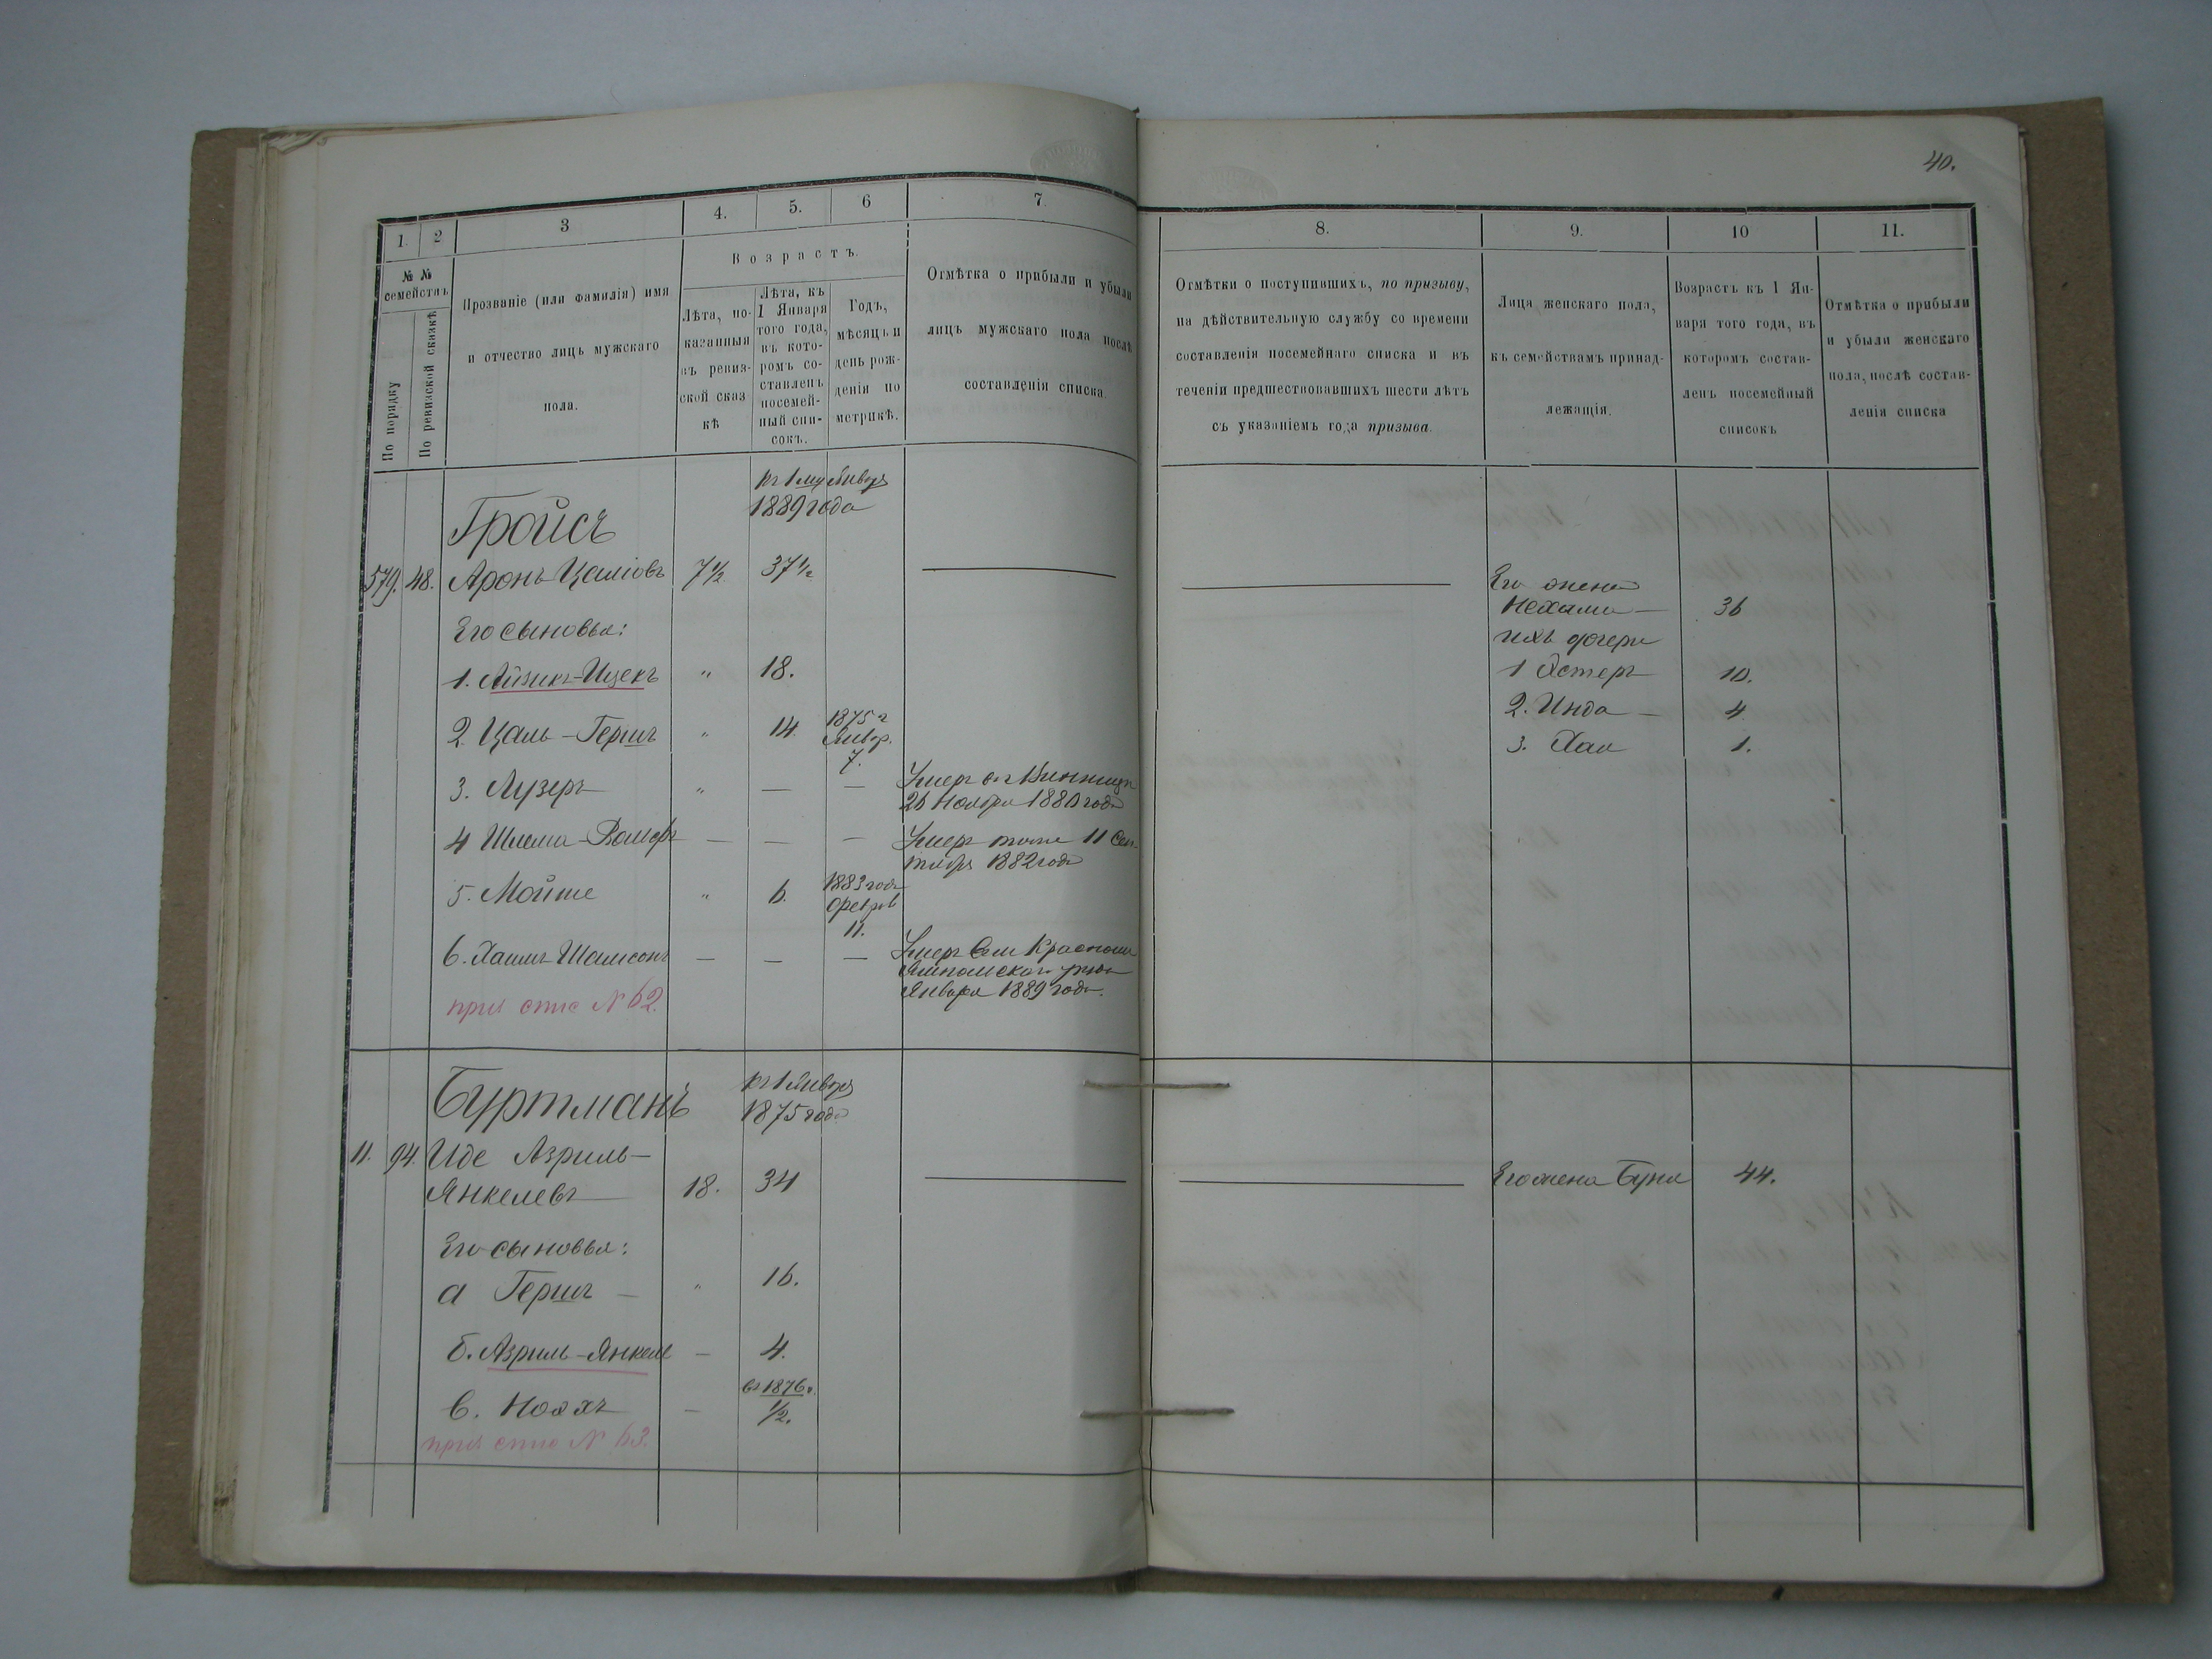 40.
1.
2
3
4.
5.
6
7.
8.
9.
10
11.
№ №
семействъ
По порядку
По ревизской сказкѣ
Прозваніе (или фамилія) имя
и отчество лицъ мужскаго
пола.
Возрастъ.
Лѣта, по-
казанныя
въ ревиз-
ской сказ
кѣ
Лѣта, къ
1 Января
того года,
въ кото-
ромъ со-
ставленъ
посемей-
ный спи-
сокъ.
Годъ,
мѣсяцъ и
день рож-
денія по
метрикѣ.
Отмѣтка о прибыли и убыли
лицъ мужскаго пола послѣ
составленія списка.
Отмѣтки о поступившихъ, по призыву,
на дѣйствительную службу со времени
составленія посемейнаго списка и въ
теченіи предшествовавшихъ шести лѣтъ
съ указаніемъ года призыва.
Лица женскаго пола,
къ семействамъ принад-
лежащія.
Возрастъ къ 1 Ян-
варя того года, въ
которомъ состав-
ленъ посемейный
списокъ
Отмѣтка о прибыли
и убыли женскаго
пола, послѣ состав-
ленія списка
Гройсъ
1889 года
579. 48. Аронъ Цаліовъ 7 1/2 37 1/2
Его жена
Нехама — 36
Его сыновья:
ихъ дочери
1. Айзикъ-Ицекъ " 18.
1 Эстеръ 10.
2. Цаль-Гершъ " 14. 1875 г
Январ.
7.
2. Инда — 4.
3. Хая 1.
3. Лузеръ " — — Умеръ въ Винницѣ
26 Ноября 1880 года
4 Шлема-Вольфъ — — — Умеръ тамъ 11 Сен-
тября 1882 года
5. Мойше " 6. 1883 года
Феврал
11.
6. Хаимъ Шамсонъ — — — Умеръ
Ямпольскаго
Января 1889 года.
приз спис № 62.
Буртманъ
къ 1 Января
1875 года
11. 94. Иде Азриль-
Янкелевъ 18. 34
Его жена Буня 44.
Его сыновья:
а Гершъ — " 16.
б. Азриль-Янкель — 4.
в. Ноахъ — въ 1876 г.
1/2.
приз спис № 63.